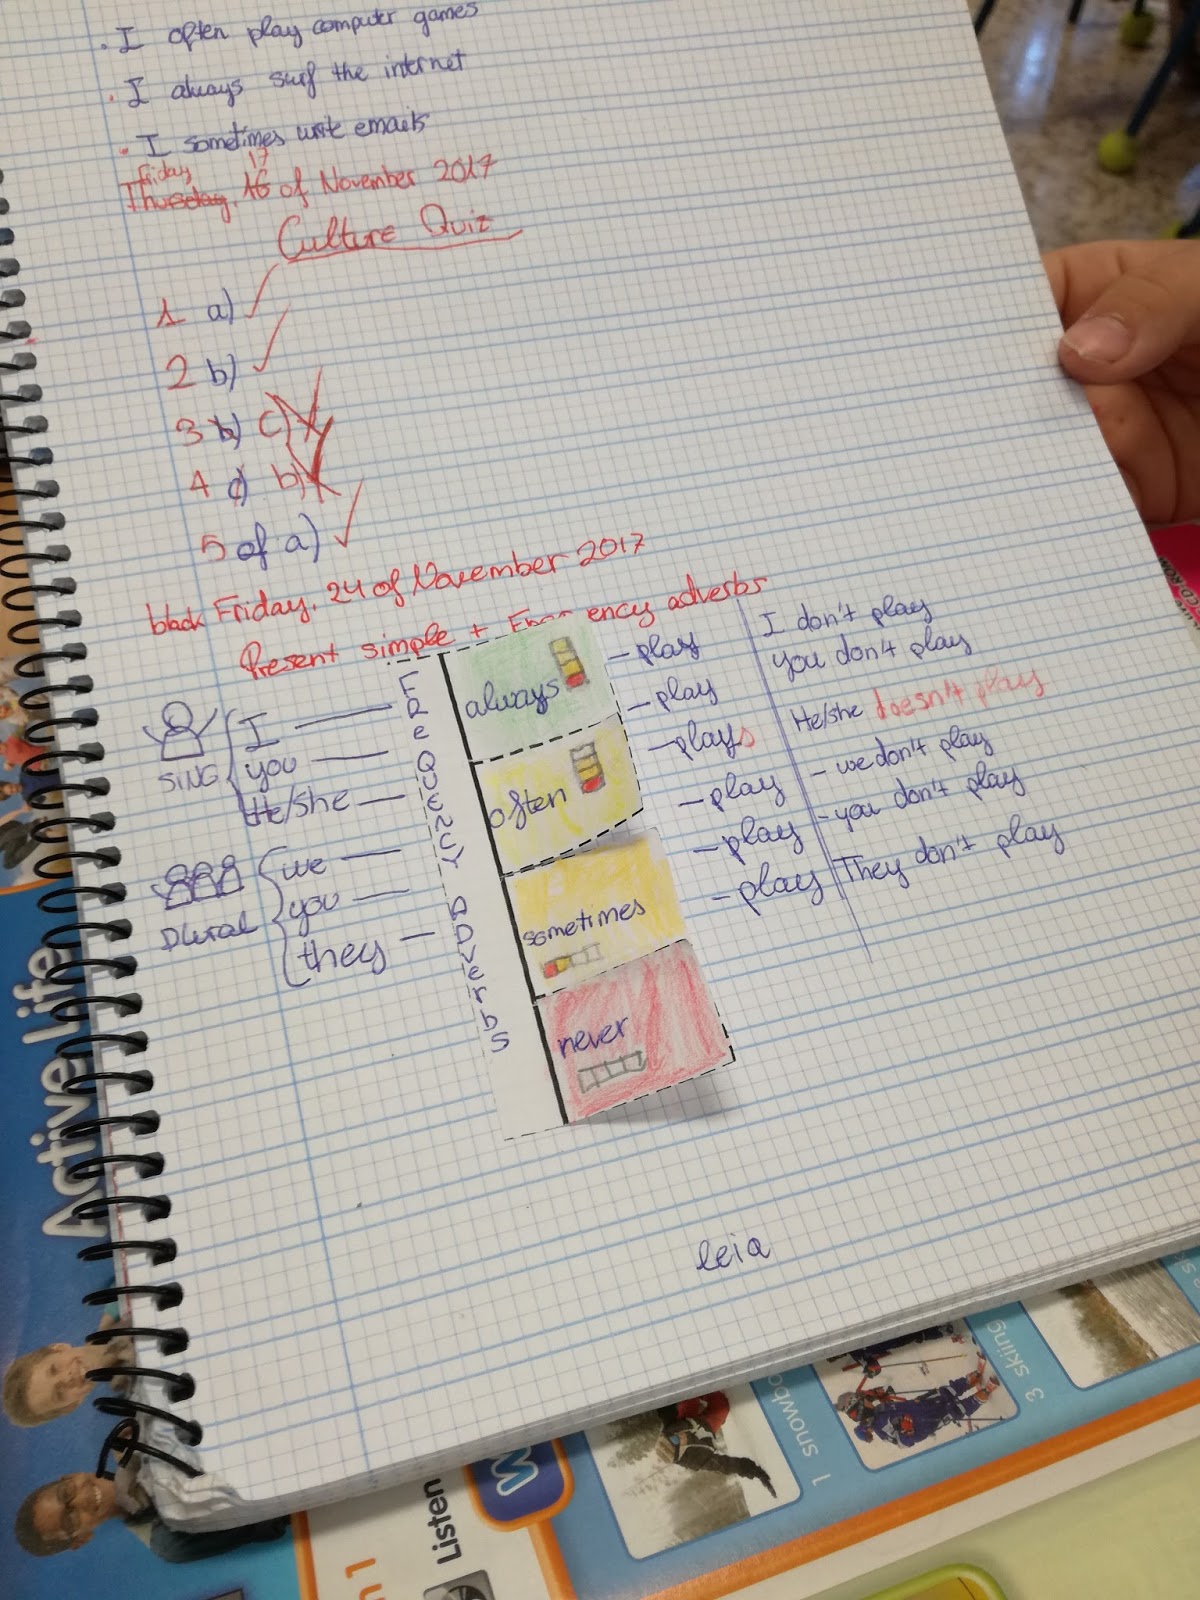 . I often play computer games
. I always surf the internet
. I sometimes write emails
Friday 17
Thursday, 16 of November 2017
Culture Quiz
1 a)
2 b)
3 b) c)
4 b)
5 of a)
black Friday, 24 of November 2017
Present simple + ency adverbs
SING
I
you
He/she
Plural
we
you
they
FReQUENCY ADVerbS
always
often
sometimes
never
- play
- play
- plays
- play
- play
- play
I don't play
you don't play
He/she doesn't play
- we don't play
- you don't play
They don't play
leia
Active Life
Listen
1 snowbo
3 skiing
CD-ROM